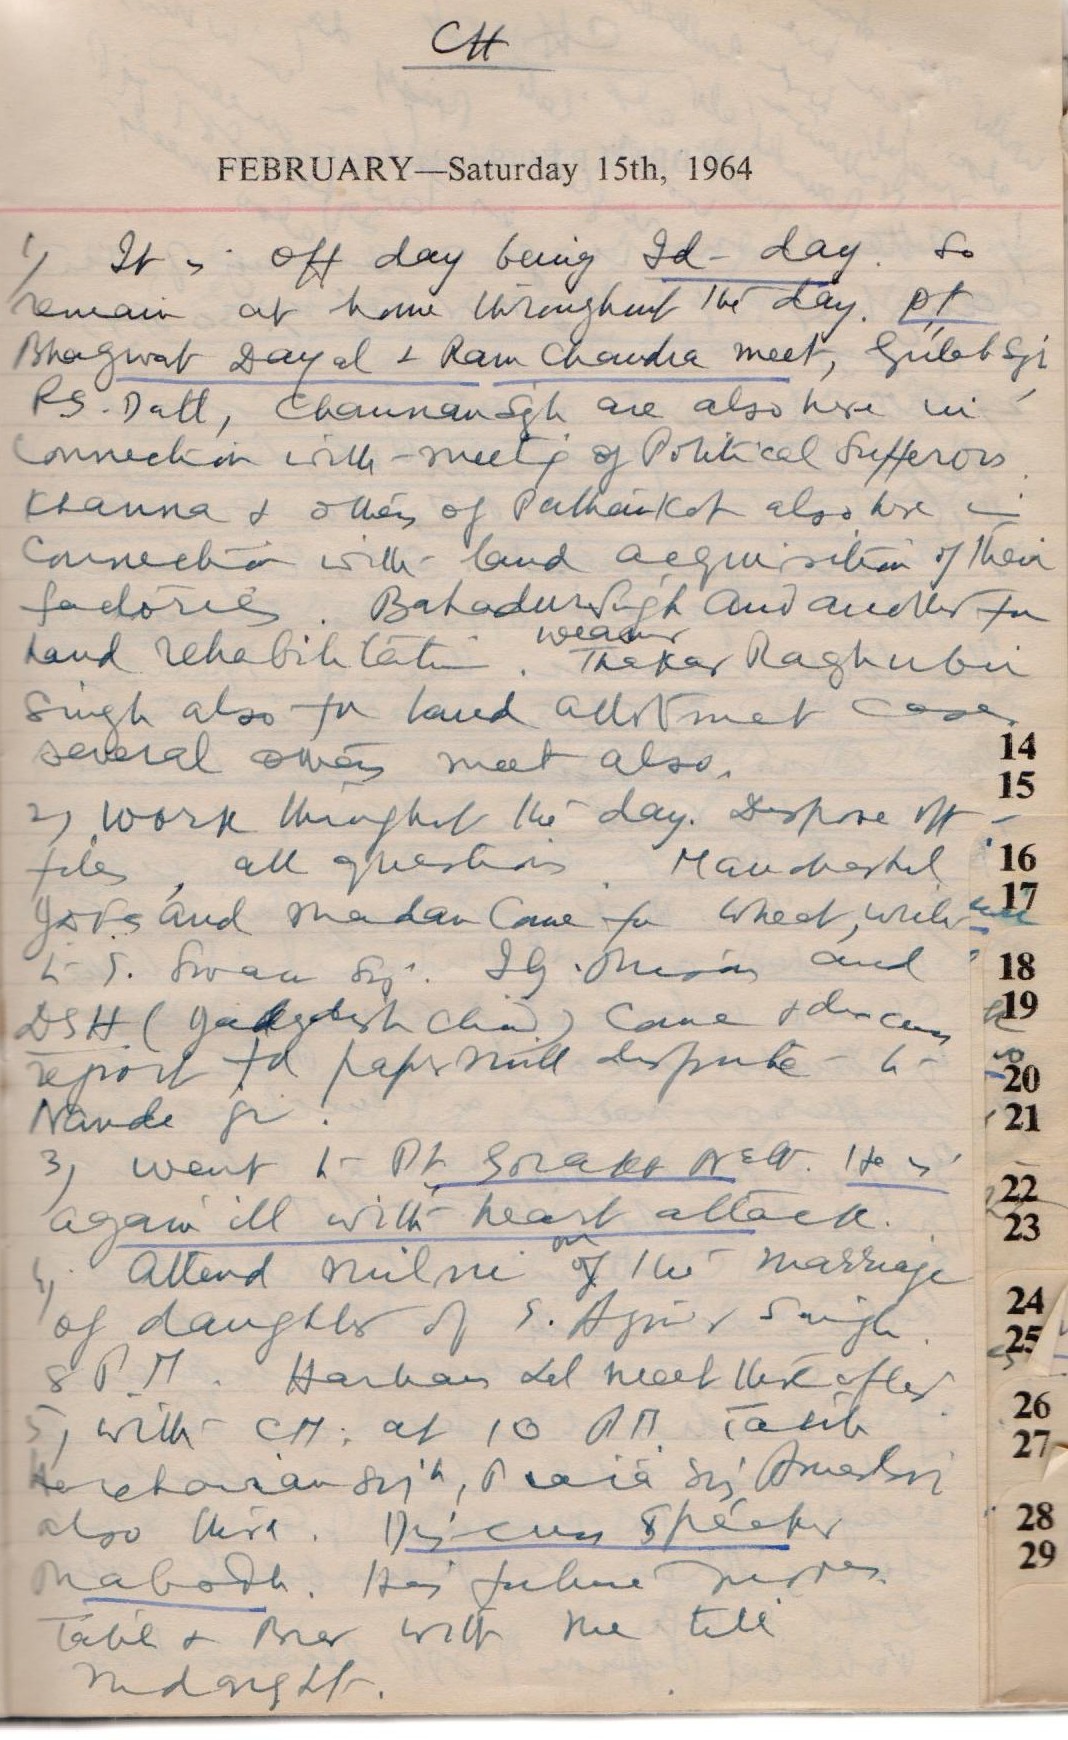 CH
FEBRUARY—Saturday 15th, 1964
1) It is off day being Id-day. So
remain at home throughout the day. Pt
Bhagwat Dayal & Ram Chandra meet, Gulab Sgh
R.S. Datt, Chaunan Sgh are also here in
connection with meetg of Political Sufferors
Khanna & others of Pathankot also here in
connection with land acquisition of their
factories. Bahadur Singh and another for
land rehabilitation. Weaver
Thakar Raghubir
Singh also for land allotment case.
several others meet also.
2) Work throughout the day. Dispose off
files, all questions.
and Madan Come for wheat, write
to S. Swan Sgh. and
DSH ( Chand) come & discuss
report for paper mill dispute to
Nanda Ji.
3) went to Pt He is
again ill with heart attack.
4) Attend milni on of the marriage
of daughter of S. Singh.
8 P.M. Harbans Lal meet there after
5) with CM. at 10 PM
also there. Discuss Speaker
His future moves.
& with me till
midnight.
14
15
16
17
18
19
20
21
22
23
24
25
26
27
28
29